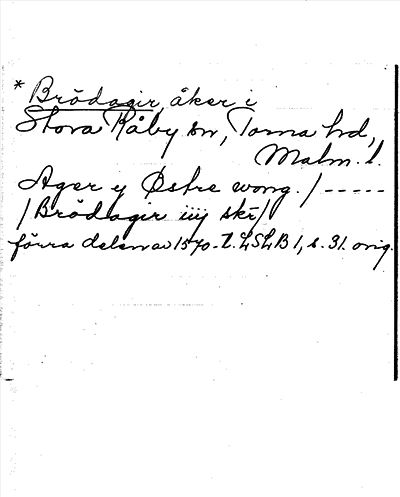 * Brödagir, åker i
Stora Råby sn, Torna hd,
Malm. l.
Ager y Østre wong. / -----
/ Brödagir iiij skr /
förra delen av 1570-t. LSLB 1, s. 31. orig.